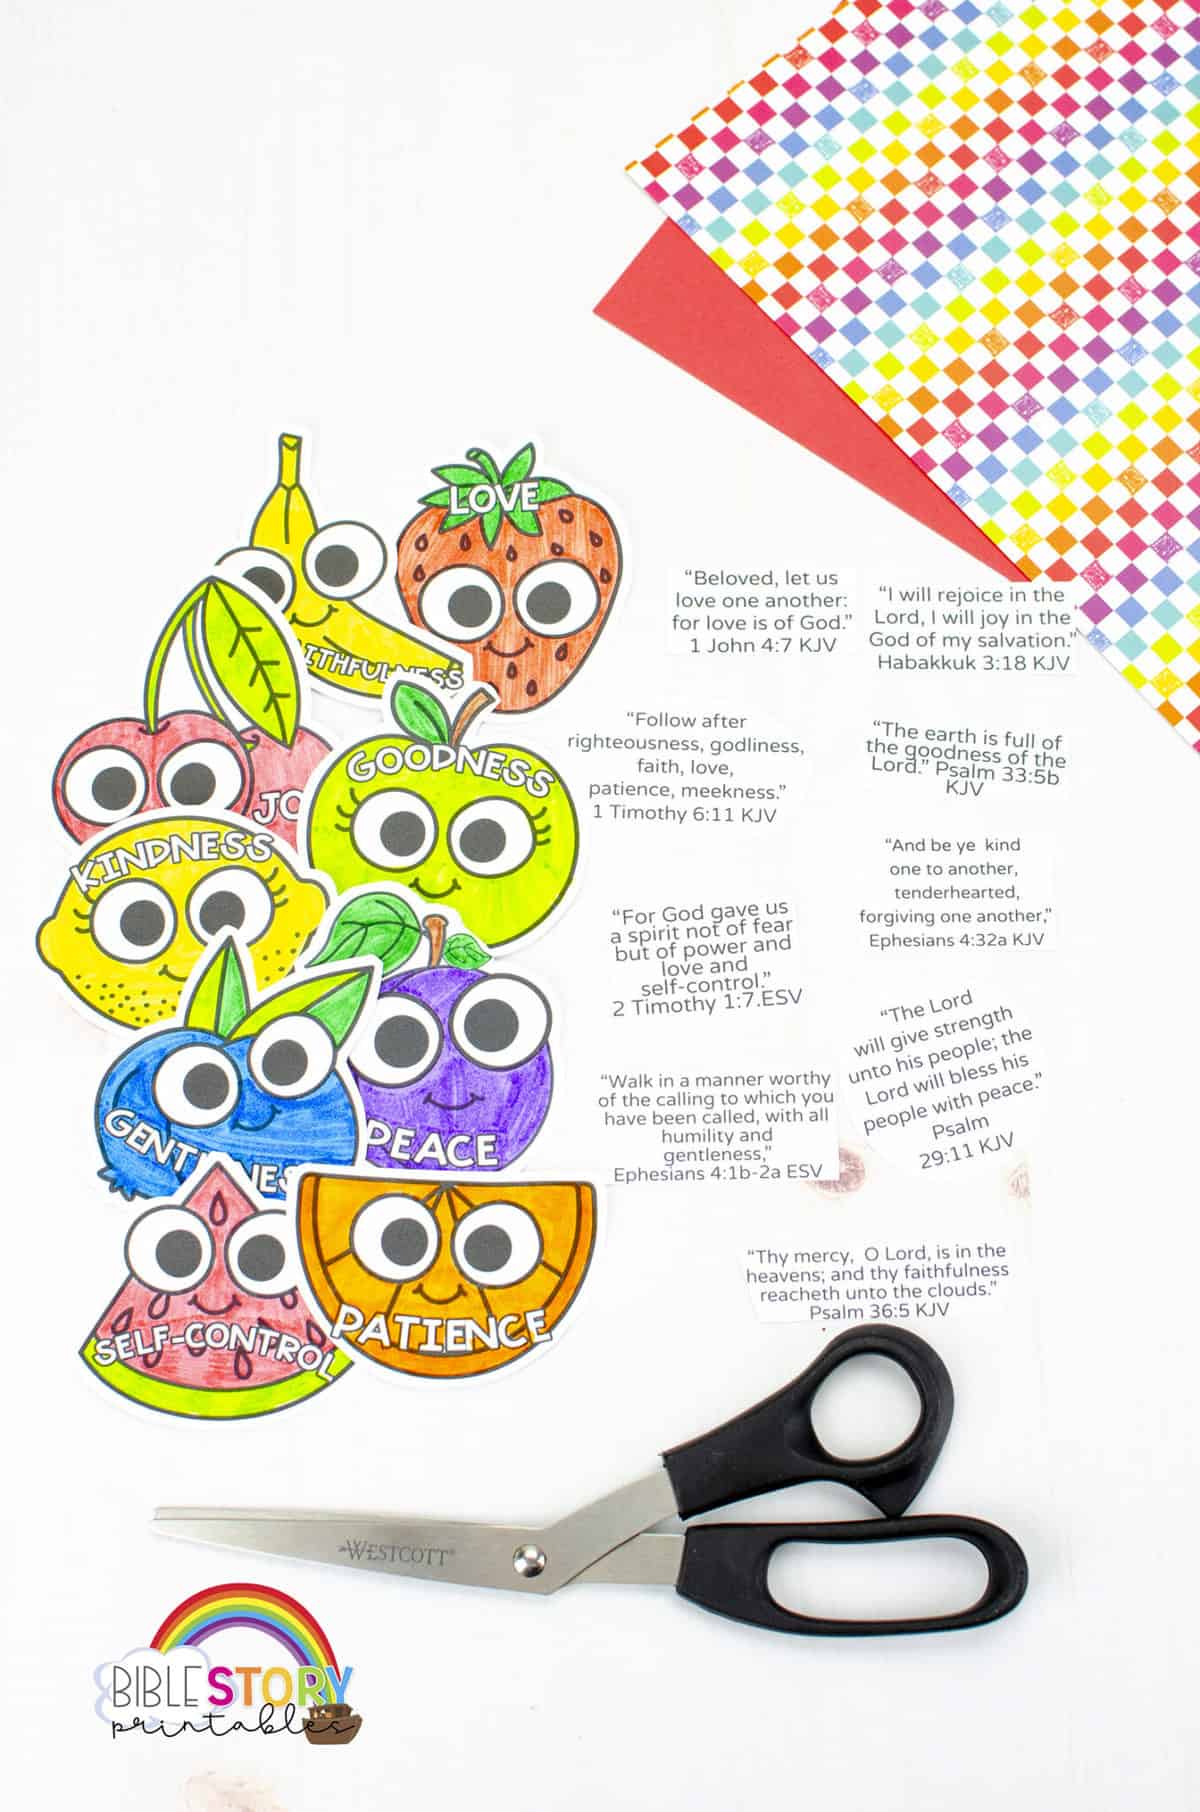 LOVE
ITHFULNESS
GOODNESS
JO
KINDNESS
PEACE
SELF-CONTROL
PATIENCE
“Beloved, let us
love one another:
for love is of God.”
1 John 4:7 KJV
“I will rejoice in the
Lord, I will joy in the
God of my salvation.”
Habakkuk 3:18 KJV
“Follow after
righteousness, godliness,
faith, love,
patience, meekness.”
1 Timothy 6:11 KJV
“The earth is full of
the goodness of the
Lord.” Psalm 33:5b
KJV
“And be ye kind
one to another,
tenderhearted,
forgiving one another,”
Ephesians 4:32a KJV
“For God gave us
a spirit not of fear
but of power and
love and
self-control.”
2 Timothy 1:7.ESV
“The Lord
will give strength
unto his people; the
Lord will bless his
people with peace.”
Psalm
29:11 KJV
“Walk in a manner worthy
of the calling to which you
have been called, with all
humility and
gentleness,”
Ephesians 4:1b-2a ESV
“Thy mercy, O Lord, is in the
heavens; and thy faithfulness
reacheth unto the clouds.”
Psalm 36:5 KJV
WESTCOTT®
BIBLE STORY
printables